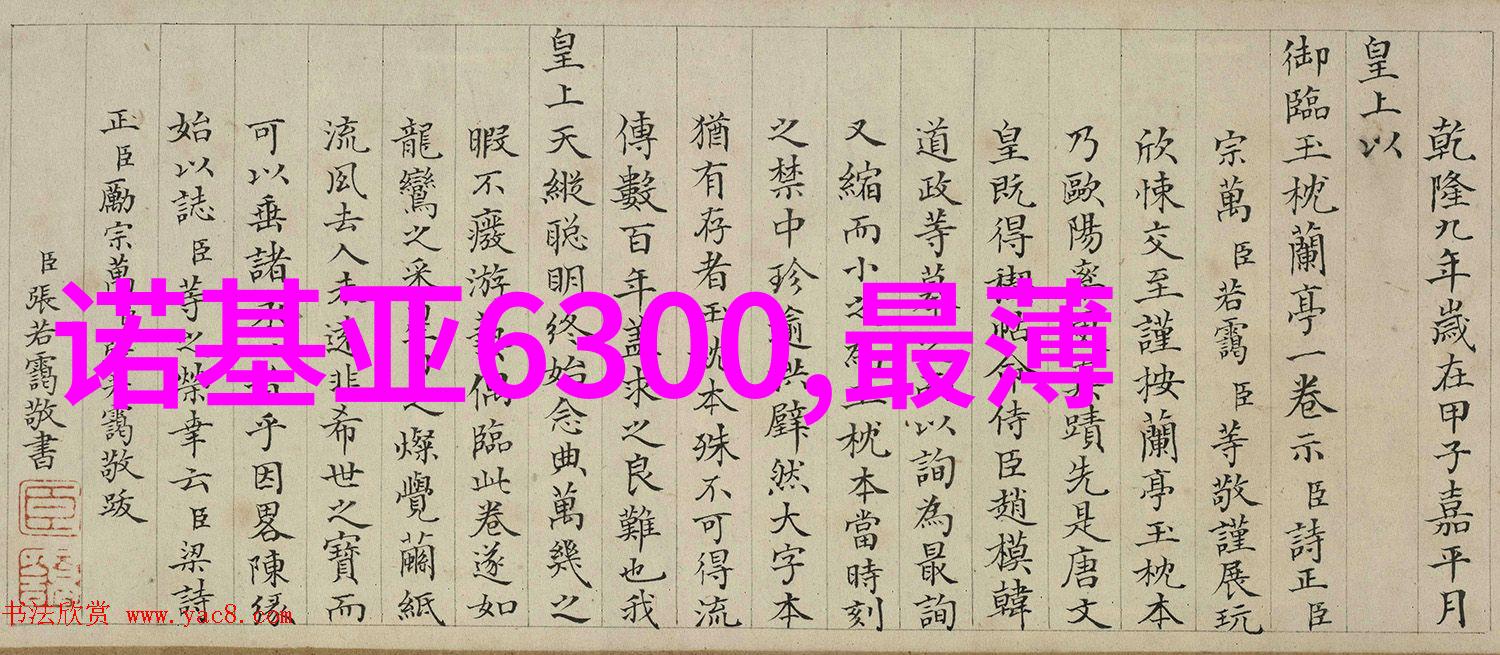 乾隆九年歲在甲子嘉平月
皇上以
御臨玉枕蘭亭一卷示臣詩正臣
宗萬臣若靄臣等敬謹展玩
欣悚交至謹按蘭亭玉枕本
乃歐陽率更真蹟先是唐文
皇既得禊帖命侍臣趙模韓
道政等摹以詢為最詢
又縮而小之為玉枕本當時刻
之禁中珍逾拱璧然大字本
猶有存者玉枕本殊不可得流
傳數百年蓋求之良難也我
皇上天縱聰明終始念典萬幾之
暇不癈游藝偶臨此卷遂如
龍鸞之采之燦覺繭紙
流風去人未遠非希世之寶而
可以垂諸乎因畧陳緣
始以誌臣等之榮幸云臣梁詩
正臣勵宗萬靄敬跋
臣張若靄敬書
诺基亚6300,最薄
书法欣赏 www.yac8.com